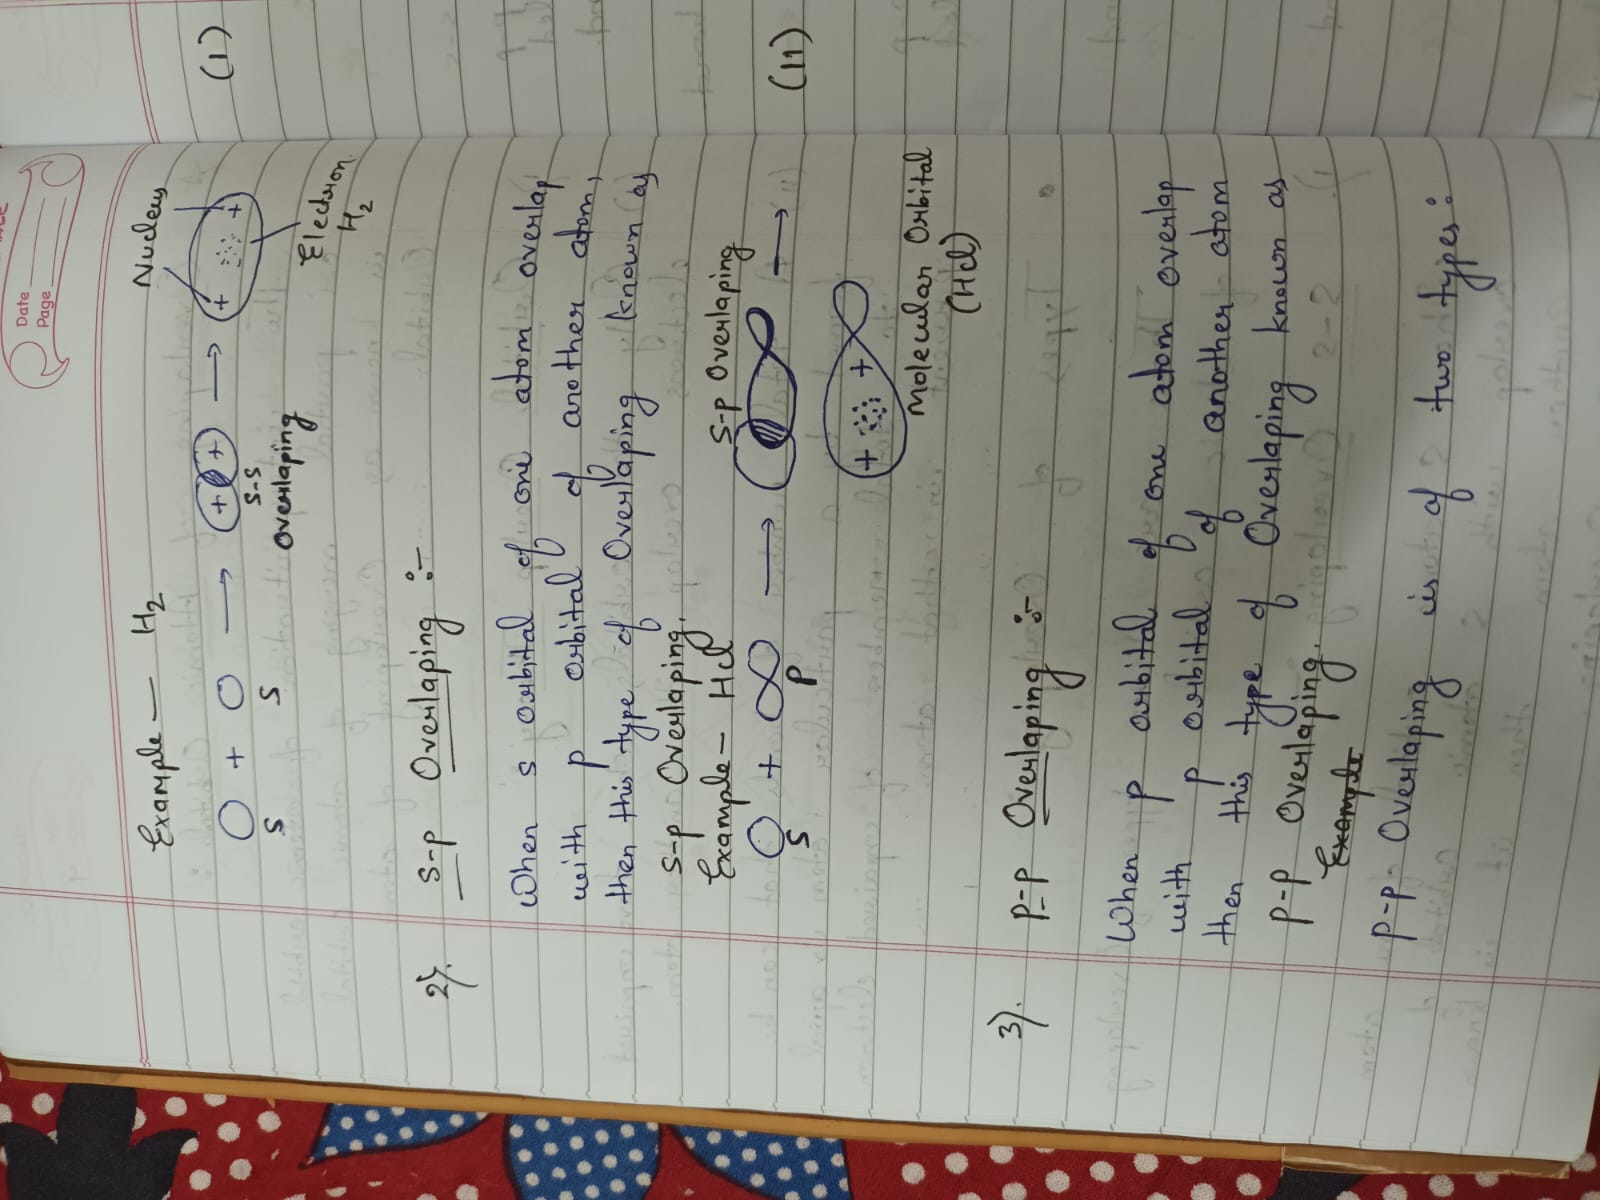 Date
Page
Example — H2
Nucleus
+ + +
S S S-S
Overlaping
+ +
Electron
H2
(1)
2). S-p Overlaping :-
When s orbital of one atom overlap
with p orbital of another atom,
then this type of Overlaping known as
S-p Overlaping.
Example - Hcl
S-p Overlaping
S + P
(11)
+ +
Molecular Orbital
(Hcl)
3). p-p Overlaping :-
When p orbital of one atom overlap
with p orbital of another atom
then this type of Overlaping known as
p-p Overlaping.
Example
p-p Overlaping is of two types: